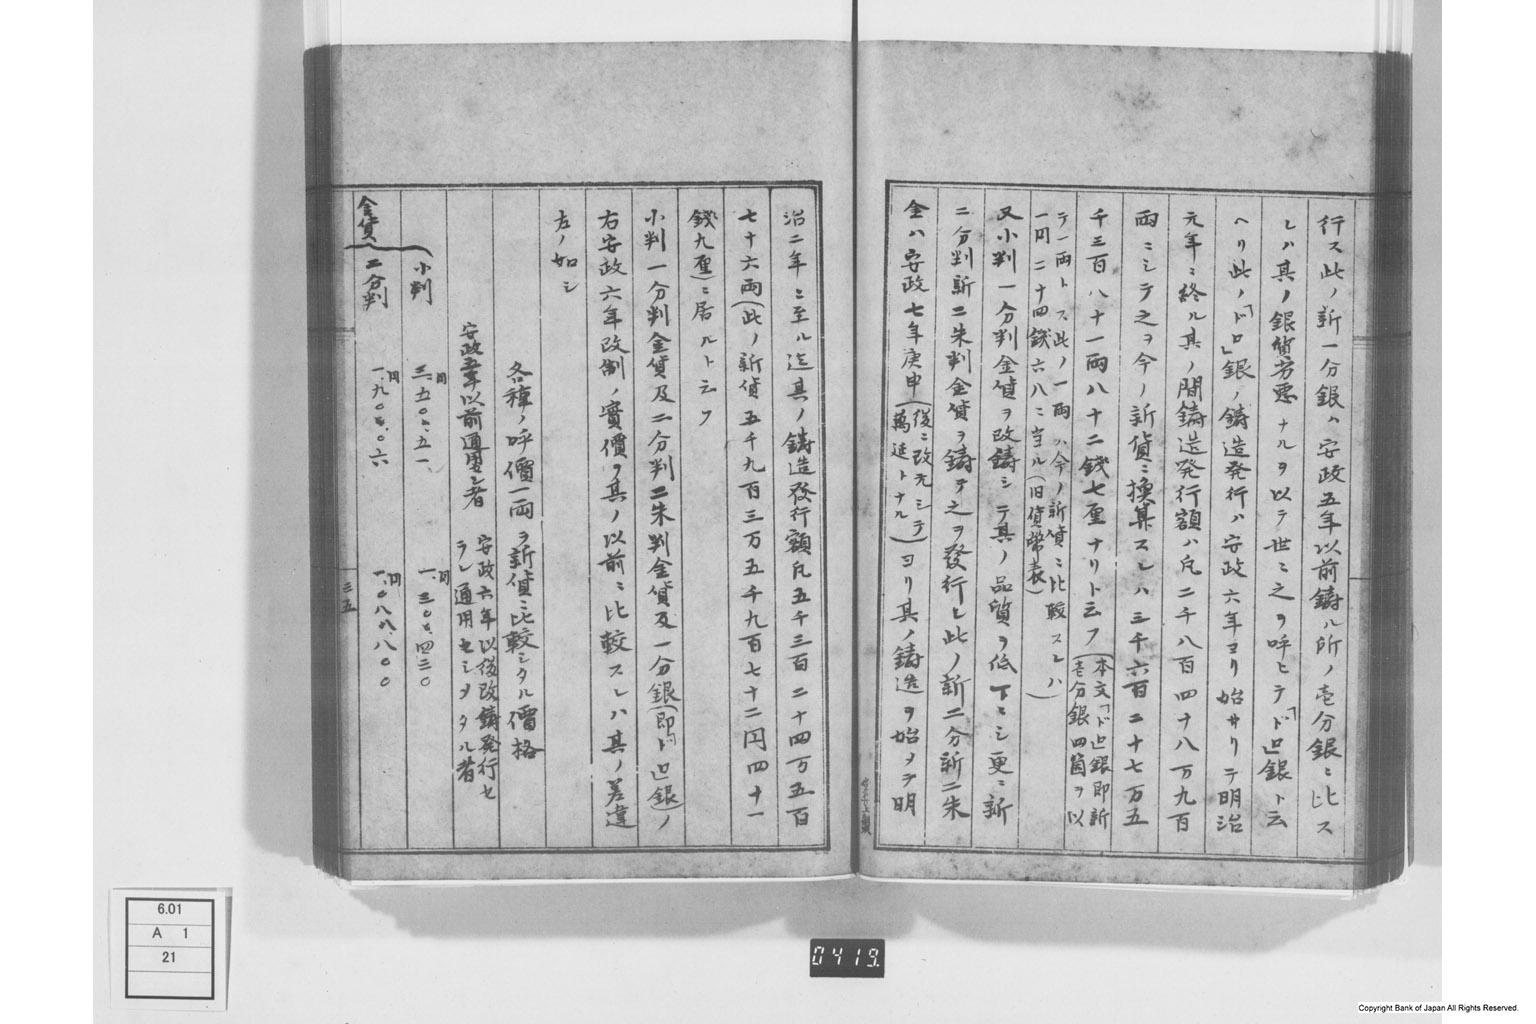 行ス此ノ新一分銀ハ安政五年以前鋳ル所ノ壱分銀ニ比ス
レハ其ノ銀貨劣悪ナルヲ以テ世ニ之ヲ呼ヒテ「ドロ」銀ト云
ヘリ此ノ「ドロ」銀ノ鋳造発行ハ安政六年ヨリ始サリテ明治
元年ニ終ル其ノ間鋳造発行額ハ凡二千八百四十八万九百
両ニシテ之ヲ今ノ新貨ニ換算スレハ三千六百二十七万五
千三百八十一両八十二銭七厘ナリト云フ(本文「ドロ」銀即新
壱分銀四箇ヲ以
テ一両トス此ノ一両ハ今ノ新貨ニ比較スレハ
一円二十四銭六八ニ当ル(旧貨幣表))
又小判一分判金貨ヲ改鋳シテ其ノ品質ヲ低下ニシ更ニ新
二分判新二朱判金貨ヲ鋳テ之ヲ發行シ此ノ新二分新二朱
金ハ安政七年庚申(後ニ改元シテ
萬延トナル)ヨリ其ノ鋳造ヲ始メテ明
治二年ニ至ル迄其ノ鋳造發行額凡五千三百二十四万五百
七十六両(此ノ新貨五千九百三万五千九百七十二円四十一
銭九厘)ニ居ルト云フ
小判一分判金貨及二分判二朱判金貨及一分銀(即「ドロ」銀)ノ
右安政六年改制ノ實價ヲ其ノ以前ニ比較スレハ其ノ差違
左ノ如シ
各種ノ呼價一両ヲ新貨ニ比較シタル價格
安政五年以前通用シ者
安政六年以後改鋳発行セ
ラレ通用セシメタル者
金貨
小判 三円.五〇、五一、 一円.三〇、四三〇
二分判 一円.九〇、〇六 一円.〇八、八〇〇
三五
6.01
A 1
21
0419.
Copyright Bank of Japan All Rights Reserved.